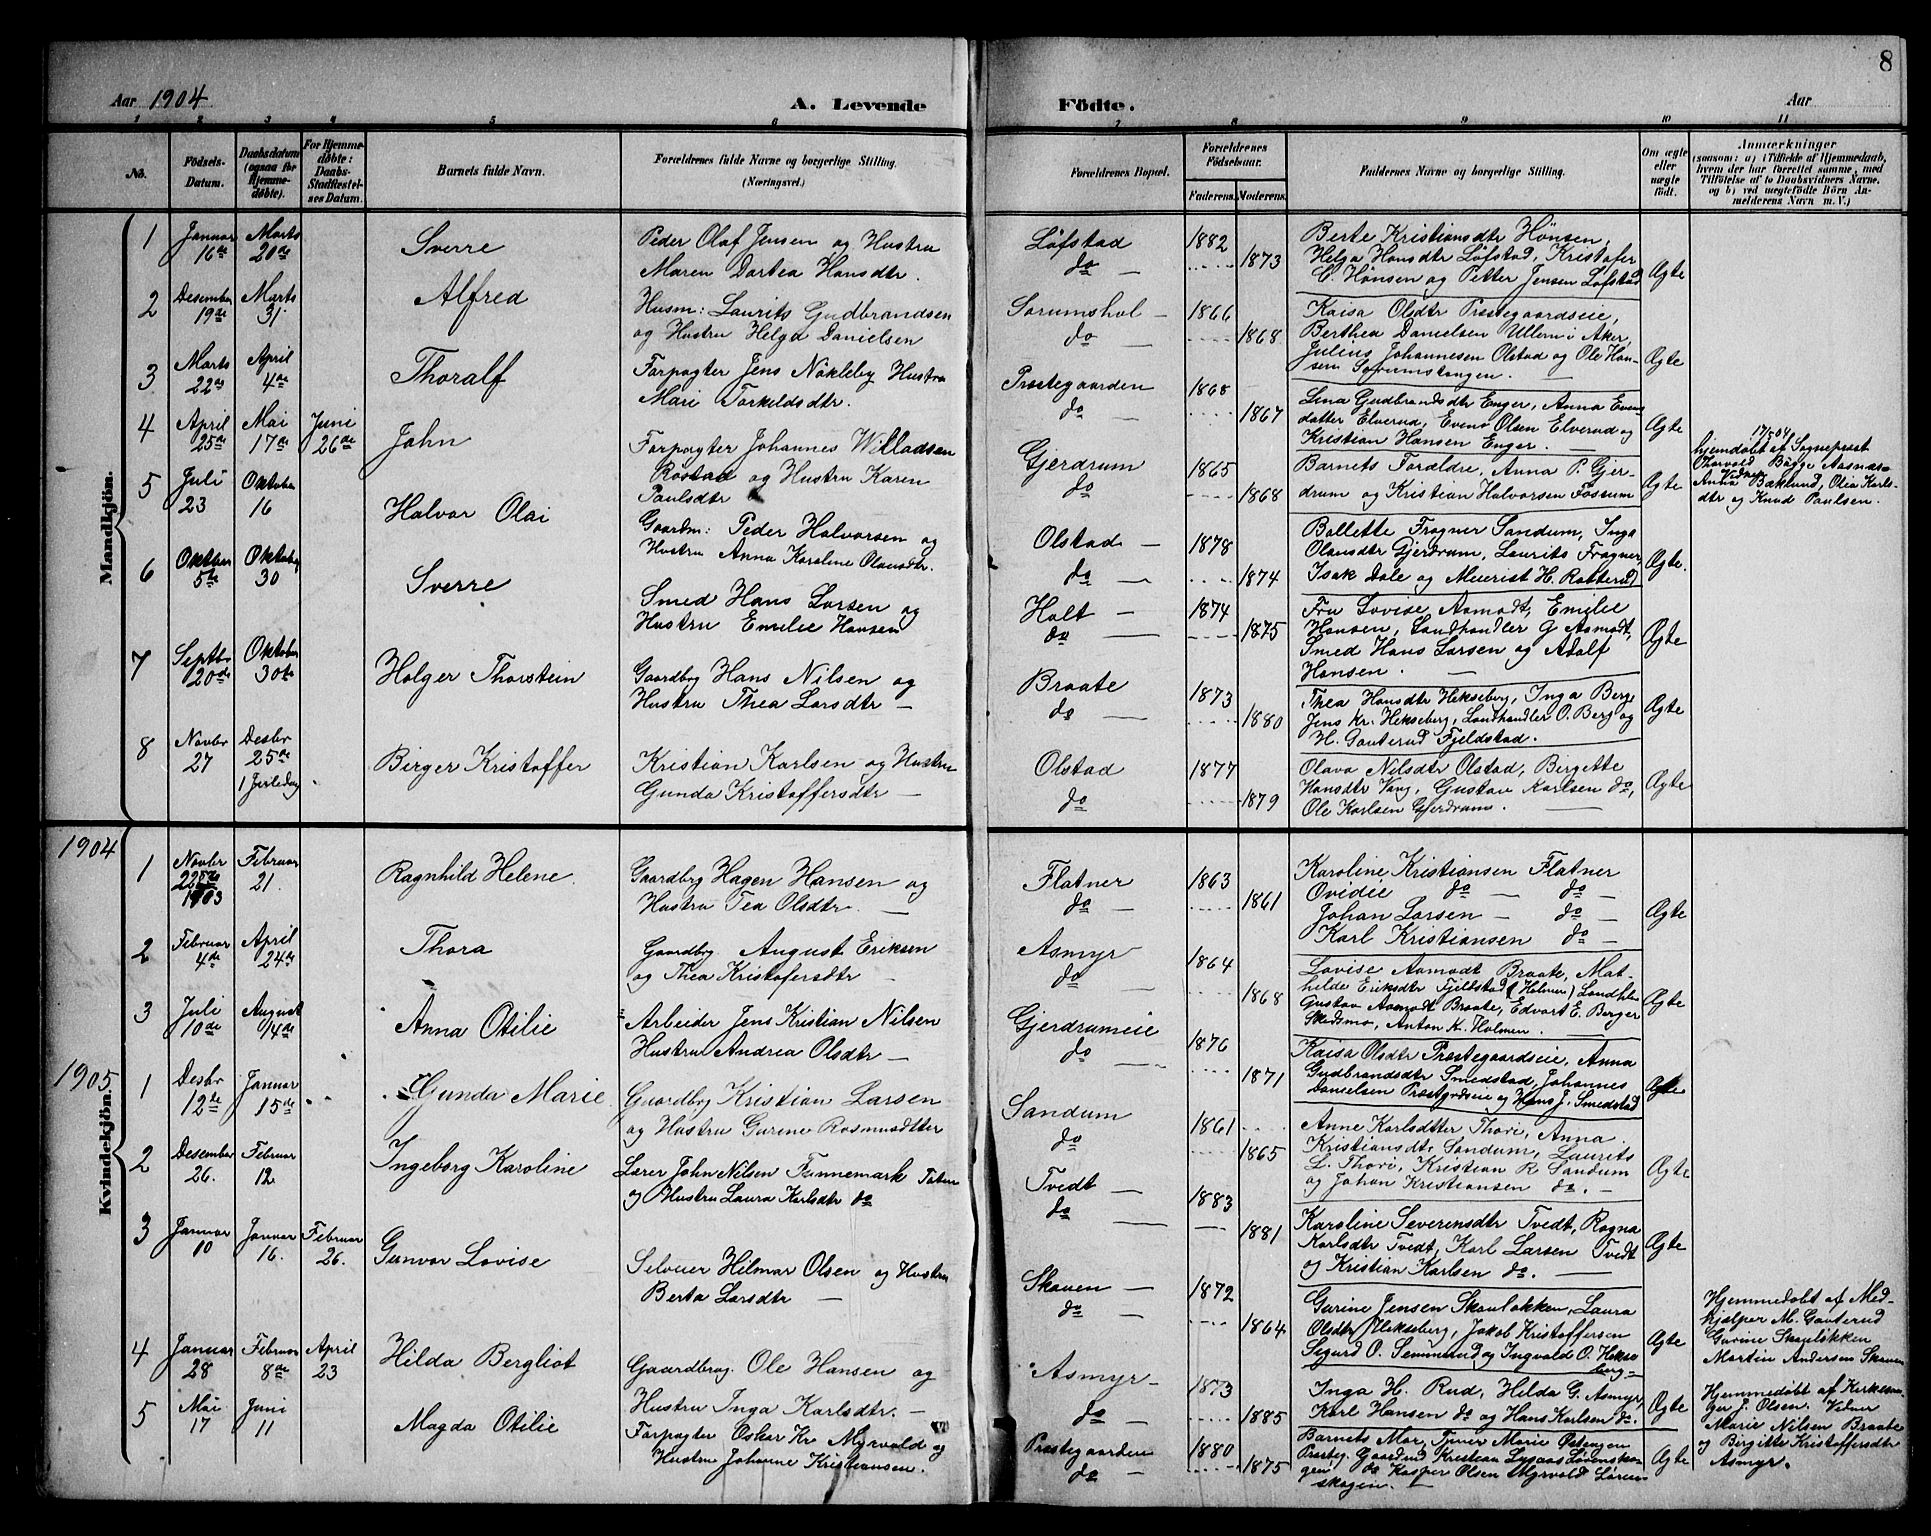 8
Aar 1904
A. Levende
Födte.
Aar
1 2 3 4 5 6 7 8 9 10 11
No.
Födsels-Datum.
Daabsdatum (ogsaa for Hjemmedøbte).
For Hjemmedøbte: Daabs-Stadfestelses Datum.
Barnets fulde Navn.
Forældrenes fulde Navne og borgerlige Stilling. (Næringsvei.)
Forældrenes Bopæl.
Forældrenes Födselsaar.
Faderens. Moderens.
Faddernes Navne og borgerlige Stilling.
Om ægte eller uægte födt.
Anmærkninger
(saasom: a) i Tilfælde af Hjemmedaab, hvem der har forrettet samme, med Tilföielse af to Daabsvidners Navne, og b) ved uægtefödte Börn Anmelderens Navn m. V.)
Mandkjön.
1 Januar 16de Marts 20de Sverre
Peder Olaf Jensen og Hustru
Maren Dortea Hansdtr.
Løfstad
do —
1882
1873
Berte Kristiansdtr Hønsen,
Helga Hansdtr Løfstad, Kristofer
C. Hønsen og Petter Jensen Løfstad
Ægte
2 Desember 19de Marts 31. Alfred
Husm: Laurits Gudbrandsen
og Hustru Helga Danielsen
Sørumshol —
do —
1866
1868
Kaisa Olsdtr Præstegaardseie,
Berthea Danielsen Ullern i Aker,
Julius Johannesen Olstad og Ole Han-
sen Sørumstangen. —
Ægte
3 Marts 22de April 4de Thoralf
Forpagter Jens Nökleby Hustru
Mari Torkildsdtr.
Præstegaarden
do —
1868
1867
Lina Gudbrandsdtr Enger, Anna Evens
datter Elverud, Even Olsen Elverud og
Kristian Hansen Enger. —
Ægte
4 April 25de Mai 17de Juni 26de John
Forpagter Johannes Willadsen
Røstad og Hustru Karen
Paulsdtr
Gjerdrum
do
1865
1868
Barnets Forældre, Anna P. Gjer-
drum og Kristian Halvorsen Fossum
Ægte
17/5 04
hjemdøbt af Sogneprest
Thorvald Bügge Aasnæs
Vidner
Anna Baklund, Olia Karls-
dtr og Knud Paulsen.
5 Juli 23 Oktober 16 Halvor Olai
Gaardm: Peder Halvorsen og
Hustru Anna Karoline Olausdtr.
Olstad —
do —
1878
1874
Bollette Fragner Sandum, Inga
Olausdtr Gjerdrum, Laurits Fragner,
Isak Dale og Meierist H. Rotterud
Ægte.
6 Oktober 5te Oktober 30 Sverre
Smed Hans Larsen og
Hustru Emilie Hansen
Holt —
do —
1874
1875
Fru Lovise Asmodt, Emilie
Hansen, Landhandler G Asmodt,
Smed Hans Larsen og Adolf
Hansen. —
Ægte
7 Septbr 20de Oktober 30te Holger Thorstein
Gaardbrg Hans Nilsen og
Hustru Thea Larsdtr —
Braate
do —
1873
1880
Thea Hansdtr Hekseberg, Inga Berg,
Jens Kr. Hekseberg, Landhandler O. Berg og
H. Gauterud Fjeldstad.
Ægte
8 Novbr 27 Desbr 25de 1 Juledag Birger Kristoffer
Kristian Karlsen og Hustru
Gunda Kristoffersdtr —
Olstad
do —
1877
1879
Olava Nilsdtr Olstad, Bergette
Hansdtr Vang, Gustav Karlsen do,
Ole Karlsen Gjerdrum. —
Ægte
Kvindekjön.
1904
1 Novbr 22de 1903 Februar 21. Ragnhild Helene.
Gaardbrg Hagen Hansen og
Hustru Tea Olsdtr. —
Flatner
do —
1863
1861
Karoline Kristiansen Flatner
Ovidie do — do —
Johan Larsen — do —
Karl Kristiansen do —
Ægte
2 Februar 4de April 24de Thora
Gaardbrg August Eriksen
og Thea Kristofersdtr —
Asmyr —
do —
1864
1868
Lovise Asmodt Braate, Mat-
hilde Eriksdtr Fjeldstad (Holmen) Landhdlr
Gustav Asmodt Braate, Edvart E. Berger
Skedsmo, Anton K. Holmen.
Ægte
3 Juli 10de August 14de Anna Otilie
Arbeider Jens Kristian Nilsen
Hustru Andrea Olsdtr —
Gjerdrumeie
do —
1876
1871
Kaisa Olsdtr Præstegaardseie, Anna
Gudbrandsdtr Smedstad, Johannes
Danielsen Præstgrdseie og Hans J. Smedstad
Ægte
1905.
1 Desbr 12te Januar 15de Gunda Marie
Gaardbrg Kristian Larsen
og Hustru Gurine Rasmusdtter
Sandum
do
1861
1865
Anne Karlsdtter Thori, Anna
Kristiansdtr Sandum, Laurits
L. Thori, Kristian R Sandum
og Johan Kristiansen do. —
Ægte
2 Desember 26. Februar 12 Ingeborg Karoline
Lærer John Nilsen Fannemark Toten
og Hustru Laura Karlsdtr do
Tvedt —
do —
1883
1881
Karoline Severensdtr Tvedt, Ragna
Karlsdtr Tvedt, Karl Larsen Tvedt
og Kristian Karlsen do. —
Ægte
3 Januar 10 Januar 16. Februar 26. Gunvor Lovise
Selveier Hilmar Olsen og Hustru
Berta Larsdtr —
Skaven —
do —
1872
1864
Gurine Jensen Skauløkken, Laura
Olsdtr Hekseberg, Jakob Kristoffersen
Sigurd O. Semmerud og Ingvald O. Hekse
berg.
Ægte
Hjemmedøbt af Med-
hjælper M. Gauterud
Gurine Skauløkken
Martin Andersen Skaven
4 Januar 28 Februar 8de April 23 Hilda Bergliot
Gaardbrg. Ole Hansen og
Hustru Inga Karlsdtr. —
Asmyr —
do —
1873
1885
Inga H. Rud, Hilda G. Asmyr,
Karl Hansen do og Hans Karlsen do.
Ægte
Hjemmedøbt af Kirkesan-
ger J. Olsen. Vidner
Marie Nilsen Braate
og Birgitte Kristoffersdtr
Asmyr.
5 Mai 17 Juni 11 Magda Otilie
Forpagter Oskar Kr. Myrvold og
Hustru Johanne Kristiansen.
Præstegaarden
do —
1880
1875
Barnets Mor, Tjener Marie Østengen
Præsteg. Gaardmd Kristian Lysaas Løvensko-
gen do Kasper Olsen Myrvold Løren-
skogen. —
Ægte